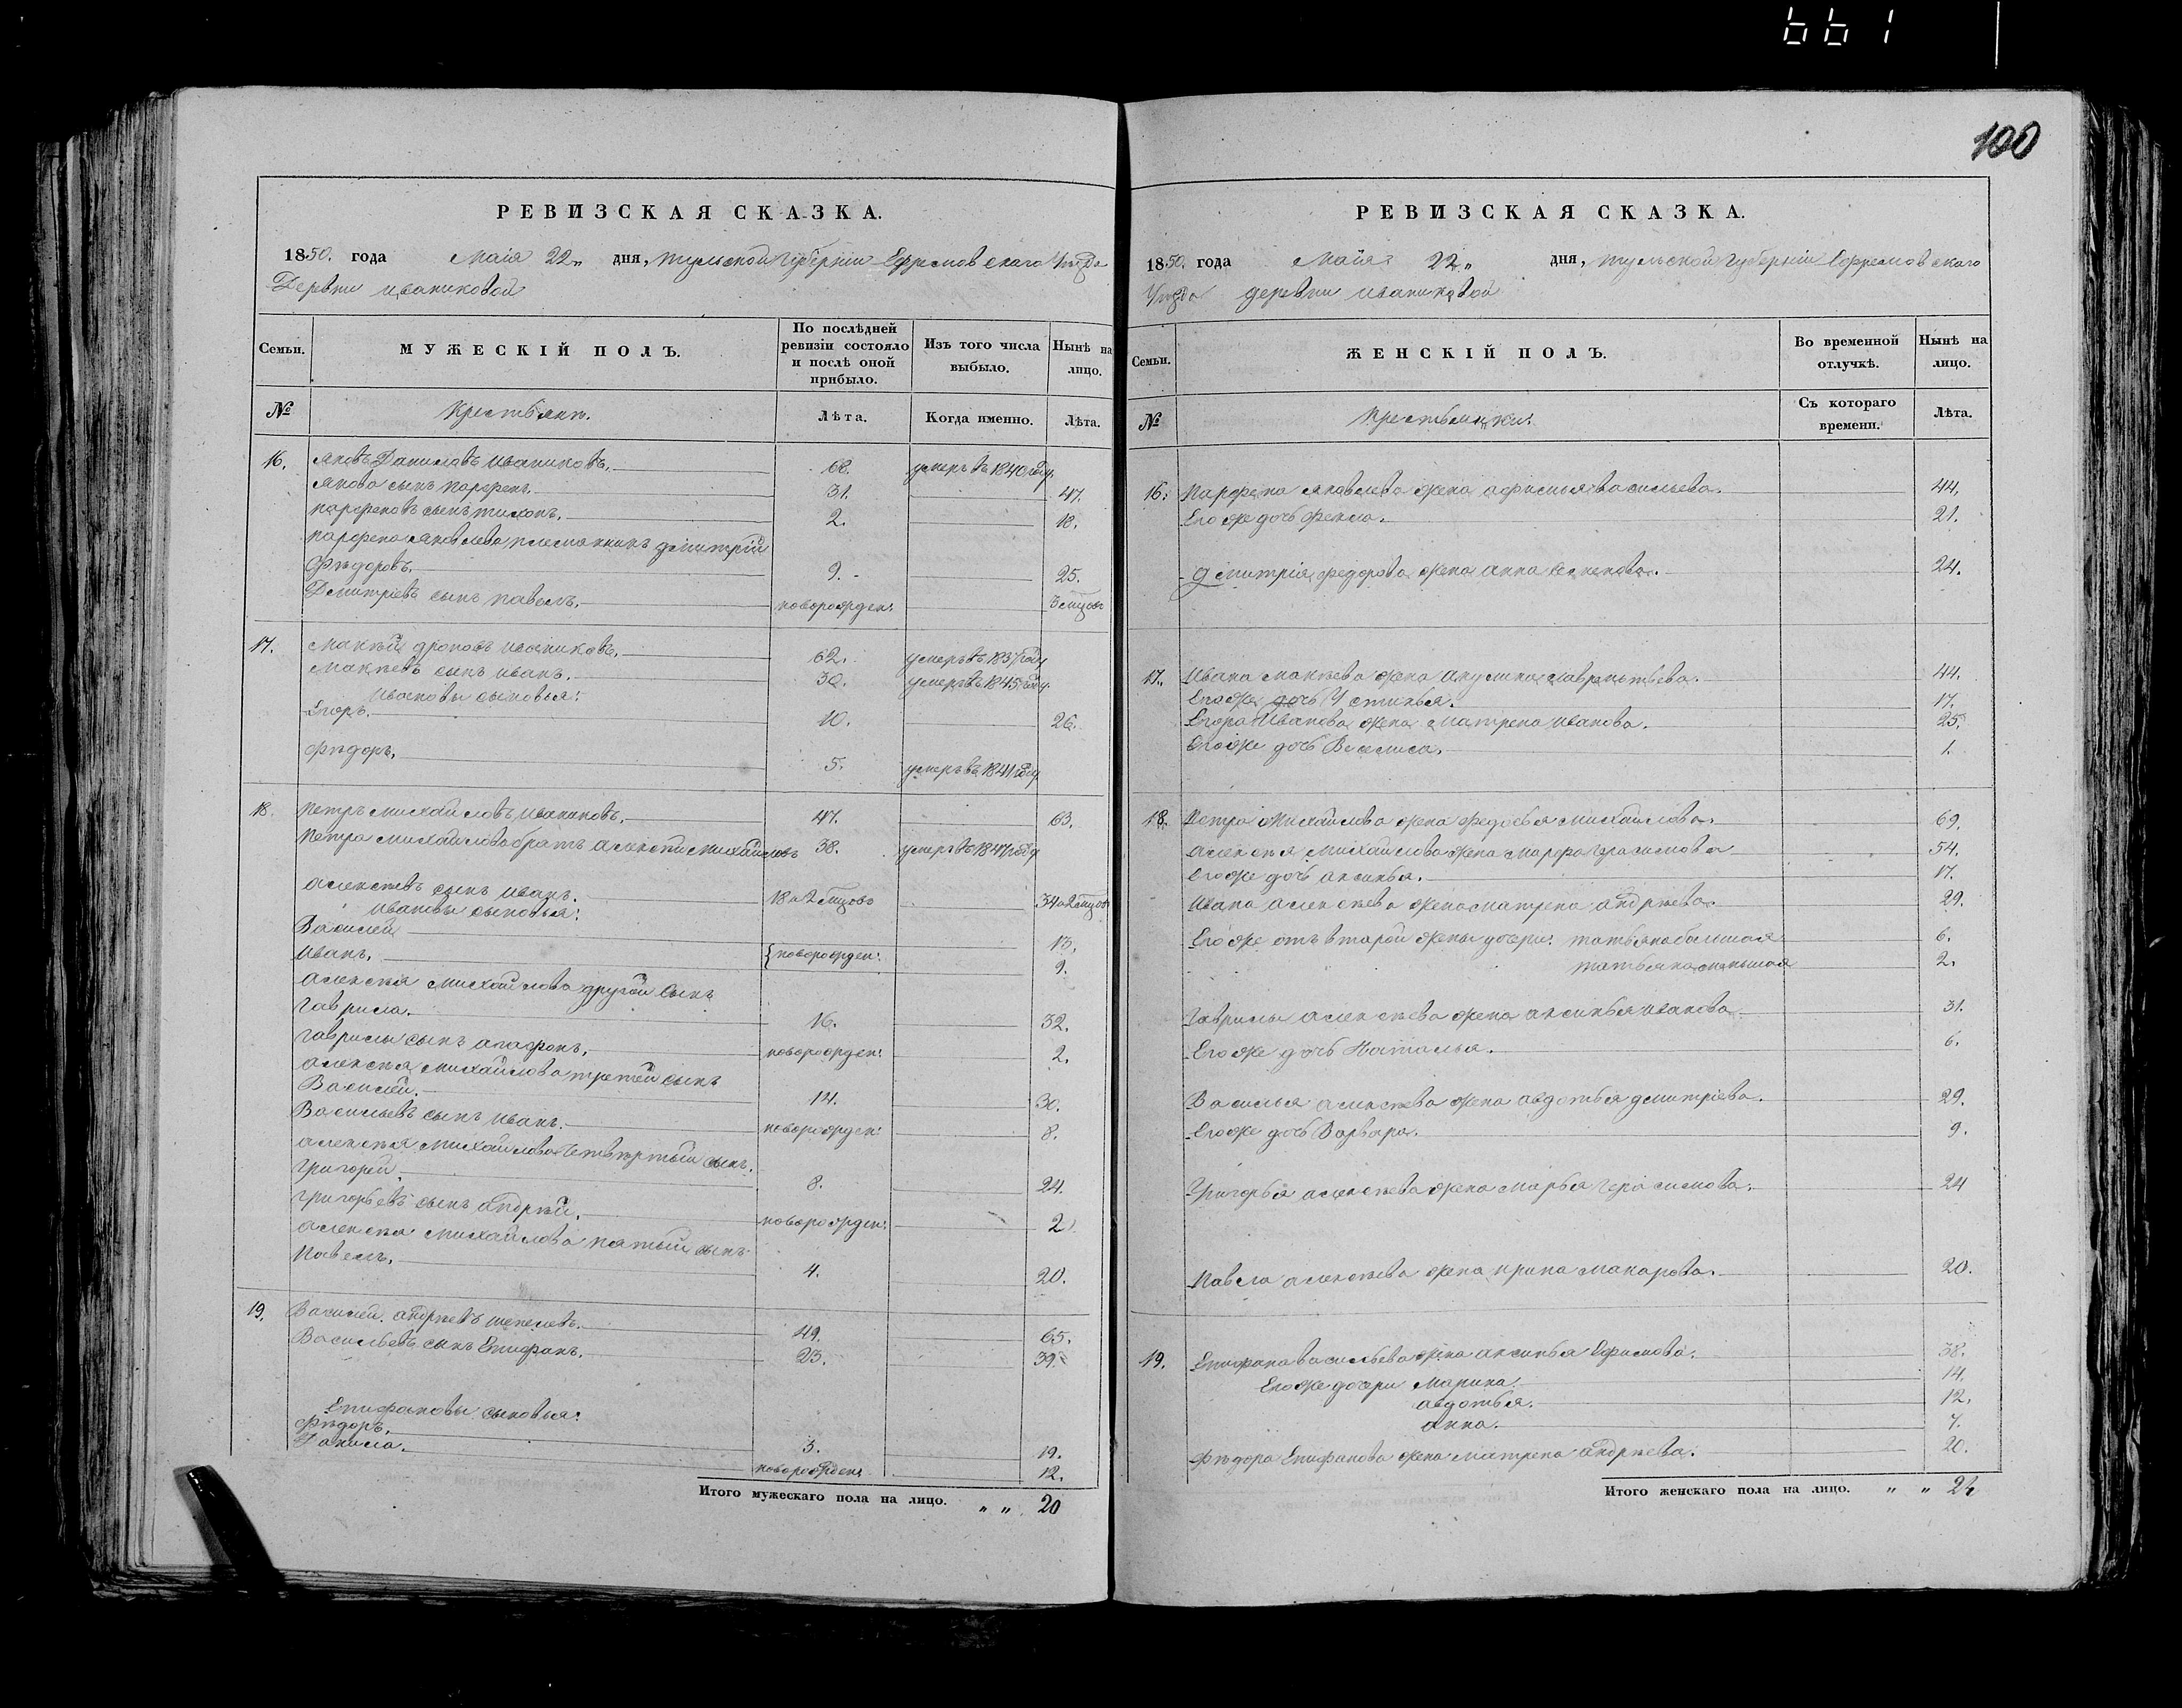 661
100
РЕВИЗСКАЯ СКАЗКА.
1850. года Маія 22 „ дня, тульской губерніи Ефремовскаго Уѣзда
Деревни иваниковой
Семьи.
МУЖЕСКІЙ ПОЛЪ.
По послѣдней ревизіи состояло и послѣ оной прибыло.
Изъ того числа выбыло.
Нынѣ на лицо.
№
Крестьянъ.
Лѣта.
Когда именно.
Лѣта.
16. яковъ Даниловъ иваниковъ. 68. умеръ въ 1840 году.
якова сынъ парфенъ. 31. 47.
парфеновъ сынъ тихонъ. 2. 18.
парфена яковлева племянникъ дмитрій
Фѣдоровъ. 9. 25.
Дмитріевъ сынъ павелъ. новорожден: 3 мцовъ
17. Макѣй иваниковъ. 62. умеръ въ 1837 году
макѣевъ сынъ иванъ. 30. умеръ въ 1845 году.
ивановы сыновья:
Егоръ. 10. 26.
Фѣдоръ. 5. умеръ въ 1841 году.
18. петръ михайловъ иваниковъ. 47. 63.
петра михайлова братъ алексѣй михайловъ 38. умеръ въ 1847 году
алексѣевъ сынъ иванъ. 18 и 2 мцовъ 34 и 2 мцовъ
ивановы сыновья:
Василей 13.
иванъ. {новорожден: 9.
алексѣя михайлова другой сынъ
гаврила. 16. 32.
гаврилы сынъ агафонъ. новорожден: 2.
алексѣя михайлова третей сынъ
Василей. 14. 30.
Васильевъ сынъ иванъ. новорожден: 8.
алексѣя михайлова четвѣртый сынъ.
григорей. 8. 24.
григорьевъ сынъ андрѣй. новорожден: 2.
алексѣя михайлова пятый сынъ
павелъ. 4. 20.
19. Василей андрѣевъ шепелевъ. 49. 65.
Васильевъ сынъ Епифанъ. 23. 39.
Епифановы сыновья:
Фѣдоръ. 3. 19.
Данила. новорожден: 12.
Итого мужескаго пола на лицо. „ „ 20
РЕВИЗСКАЯ СКАЗКА.
1850. года Маія 22 „ дня, тульской губерніи Ефремовскаго
Уѣзда деревни иваниковой
Семьи.
ЖЕНСКІЙ ПОЛЪ.
Во временной отлучкѣ.
Нынѣ на лицо.
№
Крестьянки.
Съ котораго времени.
Лѣта.
16. парфена яковлева жена афимья васильева. 44.
Егоже дочь фекла. 21.
дмитрія федорова жена анна семенова. 24.
17. ивана макѣева жена акулина лаврентьева. 44.
Егоже дочь Устинья. 17.
Егора Иванова жена матрена иванова. 25.
Егоже дочь Василиса. 1.
18. петра михайлова жена федосья михайлова. 69.
алексѣя михайлова жена марфа герасимова 54.
Егоже дочь аксинья. 17.
ивана алексѣева жена матрена андрѣева. 29.
Егоже отъ второй жены дочери: татьяна большая 6.
татьяна меньшая 2.
гаврилы алексѣева жена аксинья иванова. 31.
Егоже дочь Наталья. 6.
Василья алексѣева жена авдотья дмитріева. 29.
Егоже дочь Варвара. 9.
Григорья алексѣева жена марья герасимова. 24
павла алексѣева жена ирина макарова. 20.
19. Епифана васильева жена аксинья Ефимова. 38.
Егоже дочери марина. 14.
авдотья. 12.
анна. 7.
Фѣдора Епифанова жена матрена андрѣева. 20.
Итого женскаго пола на лицо. „ „ 24